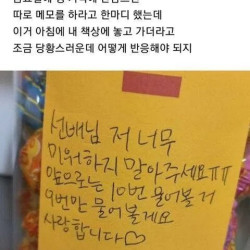 따로 메모를 하라고 한마디 했는데
이거 아침에 내 책상에 놓고 가더라고
조금 당황스러운데 어떻게 반응해야 되지
선배님 저 너무
미워하지 말아주세요ㅠㅠ
앞으로는 10번 물어볼 거
9번만 물어볼게요
사랑합니다♡